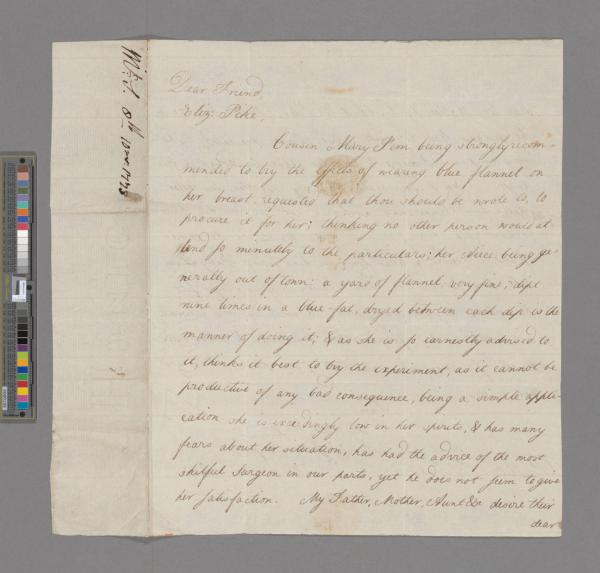 Dear Friend
Eliz: Pike,
Cousin Mary Pim being strongly recom-
mended to try the effects of wearing blue flannel on
her breast, requested that thou should be wrote to, to
procure it for her; thinking no other person would at-
tend so minutely to the particulars; her niece being ge-
nerally out of town: a yard of flannel, very fine, dipt
nine times in a blue-fat, dryed between each dip is the
manner of doing it; & as she is so earnestly advised to
it, thinks it best to try the experiment, as it cannot be
productive of any bad consequence, being a simple appli-
cation she is exceedingly low in her spirits, & has many
fears about her situation, has had the advice of the most
skilful surgeon in our parts, yet he does not seem to give
her satisfaction. My Father, Mother, Aunt &c desire their
dear